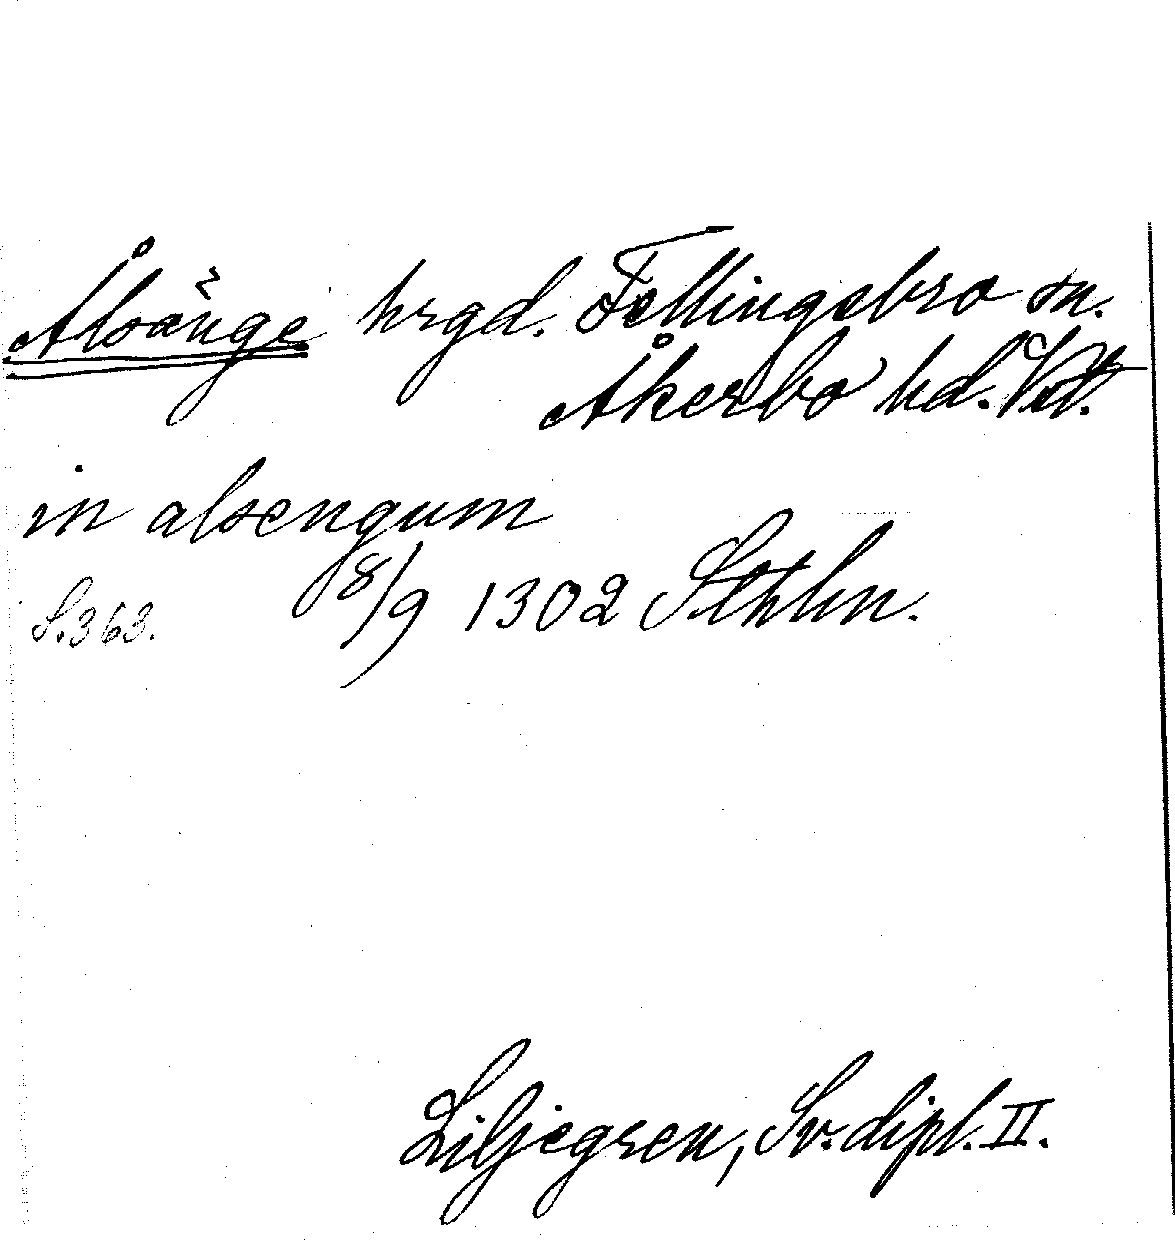 Ålsänge hrgd. Fellingsbro sn.
Åkerbo hd. Vstm.
in alsengum
8/9 1302 Sthlm.
S. 363.
Liljegren, Sv. dipl. II.